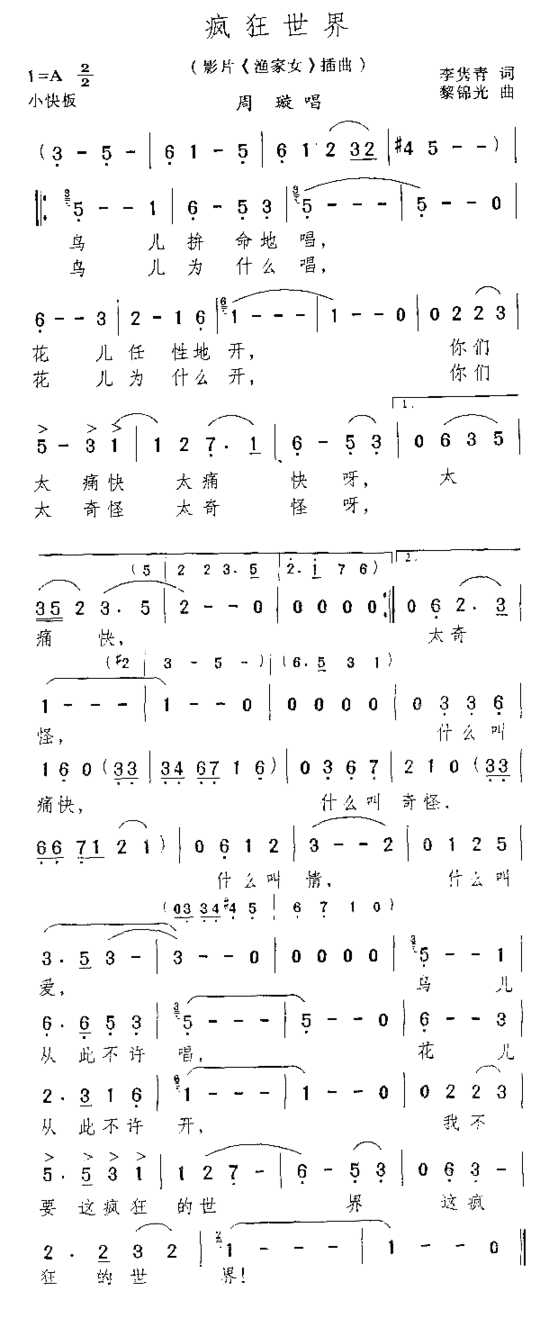 疯狂世界
(影片《渔家女》插曲)
1=A 2/2
李隽青 词
小快板
周 璇唱
黎锦光 曲
(3 - 5 - | 6 1 - 5 | 6 1 2 32 | #4 5 - - ) |
‖: 5 - - 1 | 6 - 5 3 | 5 - - - | 5 - - 0 |
鸟 儿 拚 命地 唱,
鸟 儿 为 什么 唱,
6 - - 3 | 2 - 1 6 | 1 - - - | 1 - - 0 | 0 2 2 3 |
花 儿 任 性地 开, 你们
花 儿 为 什么 开, 你们
1.
5 - 3 1 | 1 2 7 . 1 | 6 - 5 3 | 0 6 3 5 |
太 痛快 太 痛 快 呀, 太
太 奇怪 太 奇 怪 呀,
(5 | 2 2 3 . 5 | 2 . 1 7 6) 2.
35 2 3 . 5 | 2 - - 0 | 0 0 0 0 :‖ 0 6 2 . 3 |
痛 快, 太奇
(#2 | 3 - 5 - ) | (6 . 5 3 1)
1 - - - | 1 - - 0 | 0 0 0 0 | 0 0 0 0 | 0 3 3 6 |
怪, 什么叫
1 6 0 (33 | 34 67 1 6) | 0 3 6 7 | 2 1 0 (33 |
痛快, 什么叫 奇怪.
66 71 2 1) | 0 6 1 2 | 3 - - 2 | 0 1 2 5 |
什么叫 情, 什么叫
(03 34 #4 5 | 6 7 1 0)
3 . 5 3 - | 3 - - 0 | 0 0 0 0 | 5 - - 1 |
爱, 鸟 儿
6 . 6 5 3 | 5 - - - | 5 - - 0 | 6 - - 3 |
从 此不许 唱, 花 儿
2 . 3 1 6 | 1 - - - | 1 - - 0 | 0 2 2 3 |
从 此不许 开, 我不
5 . 5 3 1 | 1 2 7 - | 6 - 5 3 | 0 6 3 - |
要 这疯狂 的世 界 这疯
2 . 2 3 2 | 1 - - - | 1 - - 0 ‖
狂 的世 界!